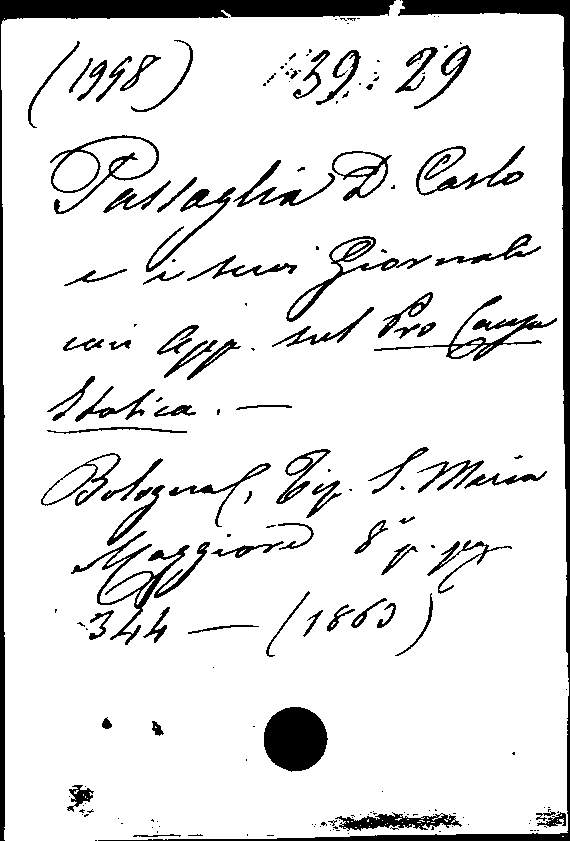 (1998) 39. 29
Passaglia D. Carlo
e i suoi Giornali
con App. sul Pro Causa
Italica. —
Bologna, Tip. S. Maria
Maggiore 8° p. pag
344 — (1863)